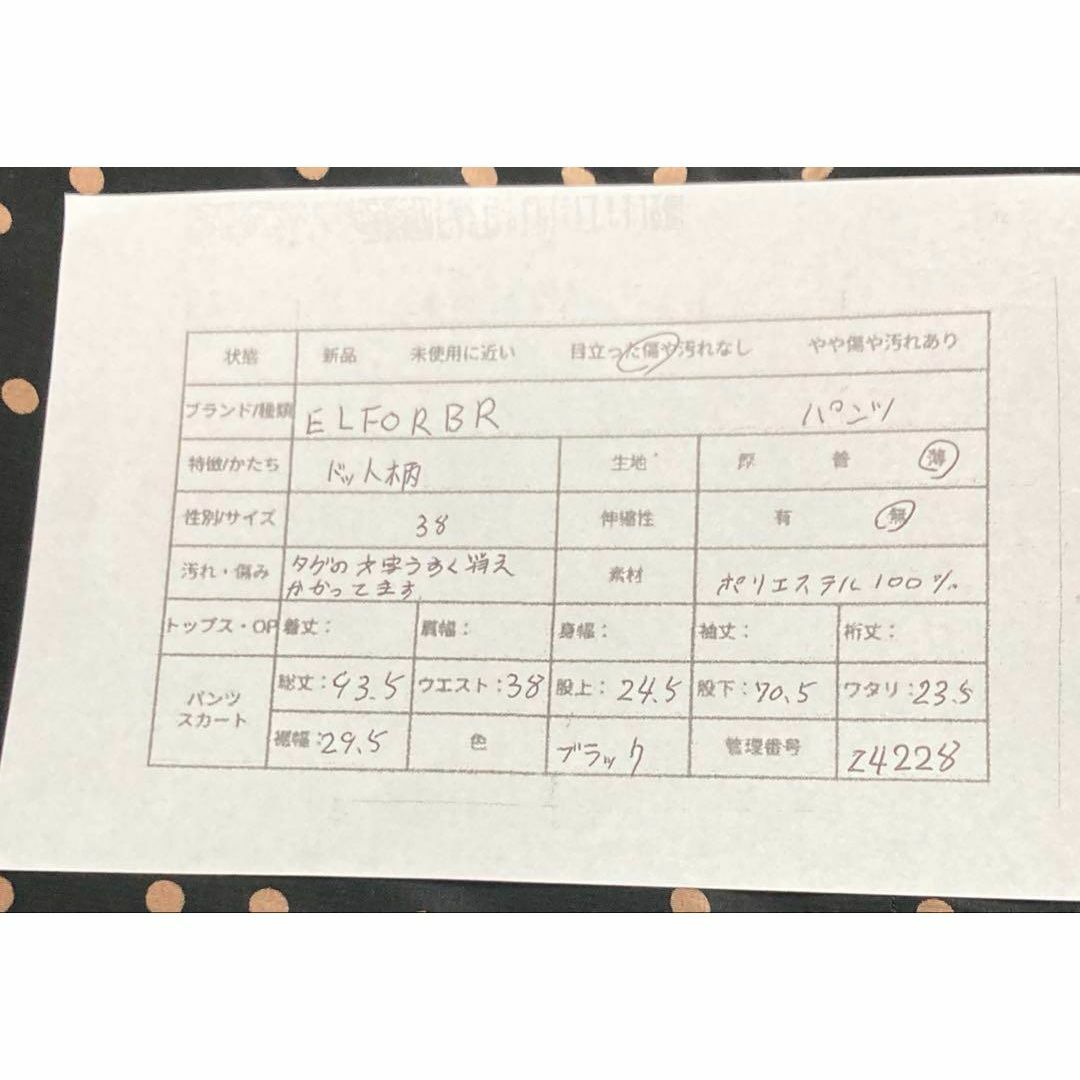 状態 新品 未使用に近い 目立った傷や汚れなし やや傷や汚れあり
ブランド/種類 ELFORBR パンツ
特徴/かたち ドット柄 生地 厚 普 薄
性別/サイズ 38 伸縮性 有 無
汚れ・傷み タグの文字うすく消え
かかってます 素材 ポリエステル100%
トップス・OP 着丈: 肩幅: 身幅: 袖丈: 裄丈:
パンツ
スカート 総丈:93.5 ウエスト:38 股上:24.5 股下:70.5 ワタリ:23.5
裾幅:29.5 色 ブラック 管理番号 z4228